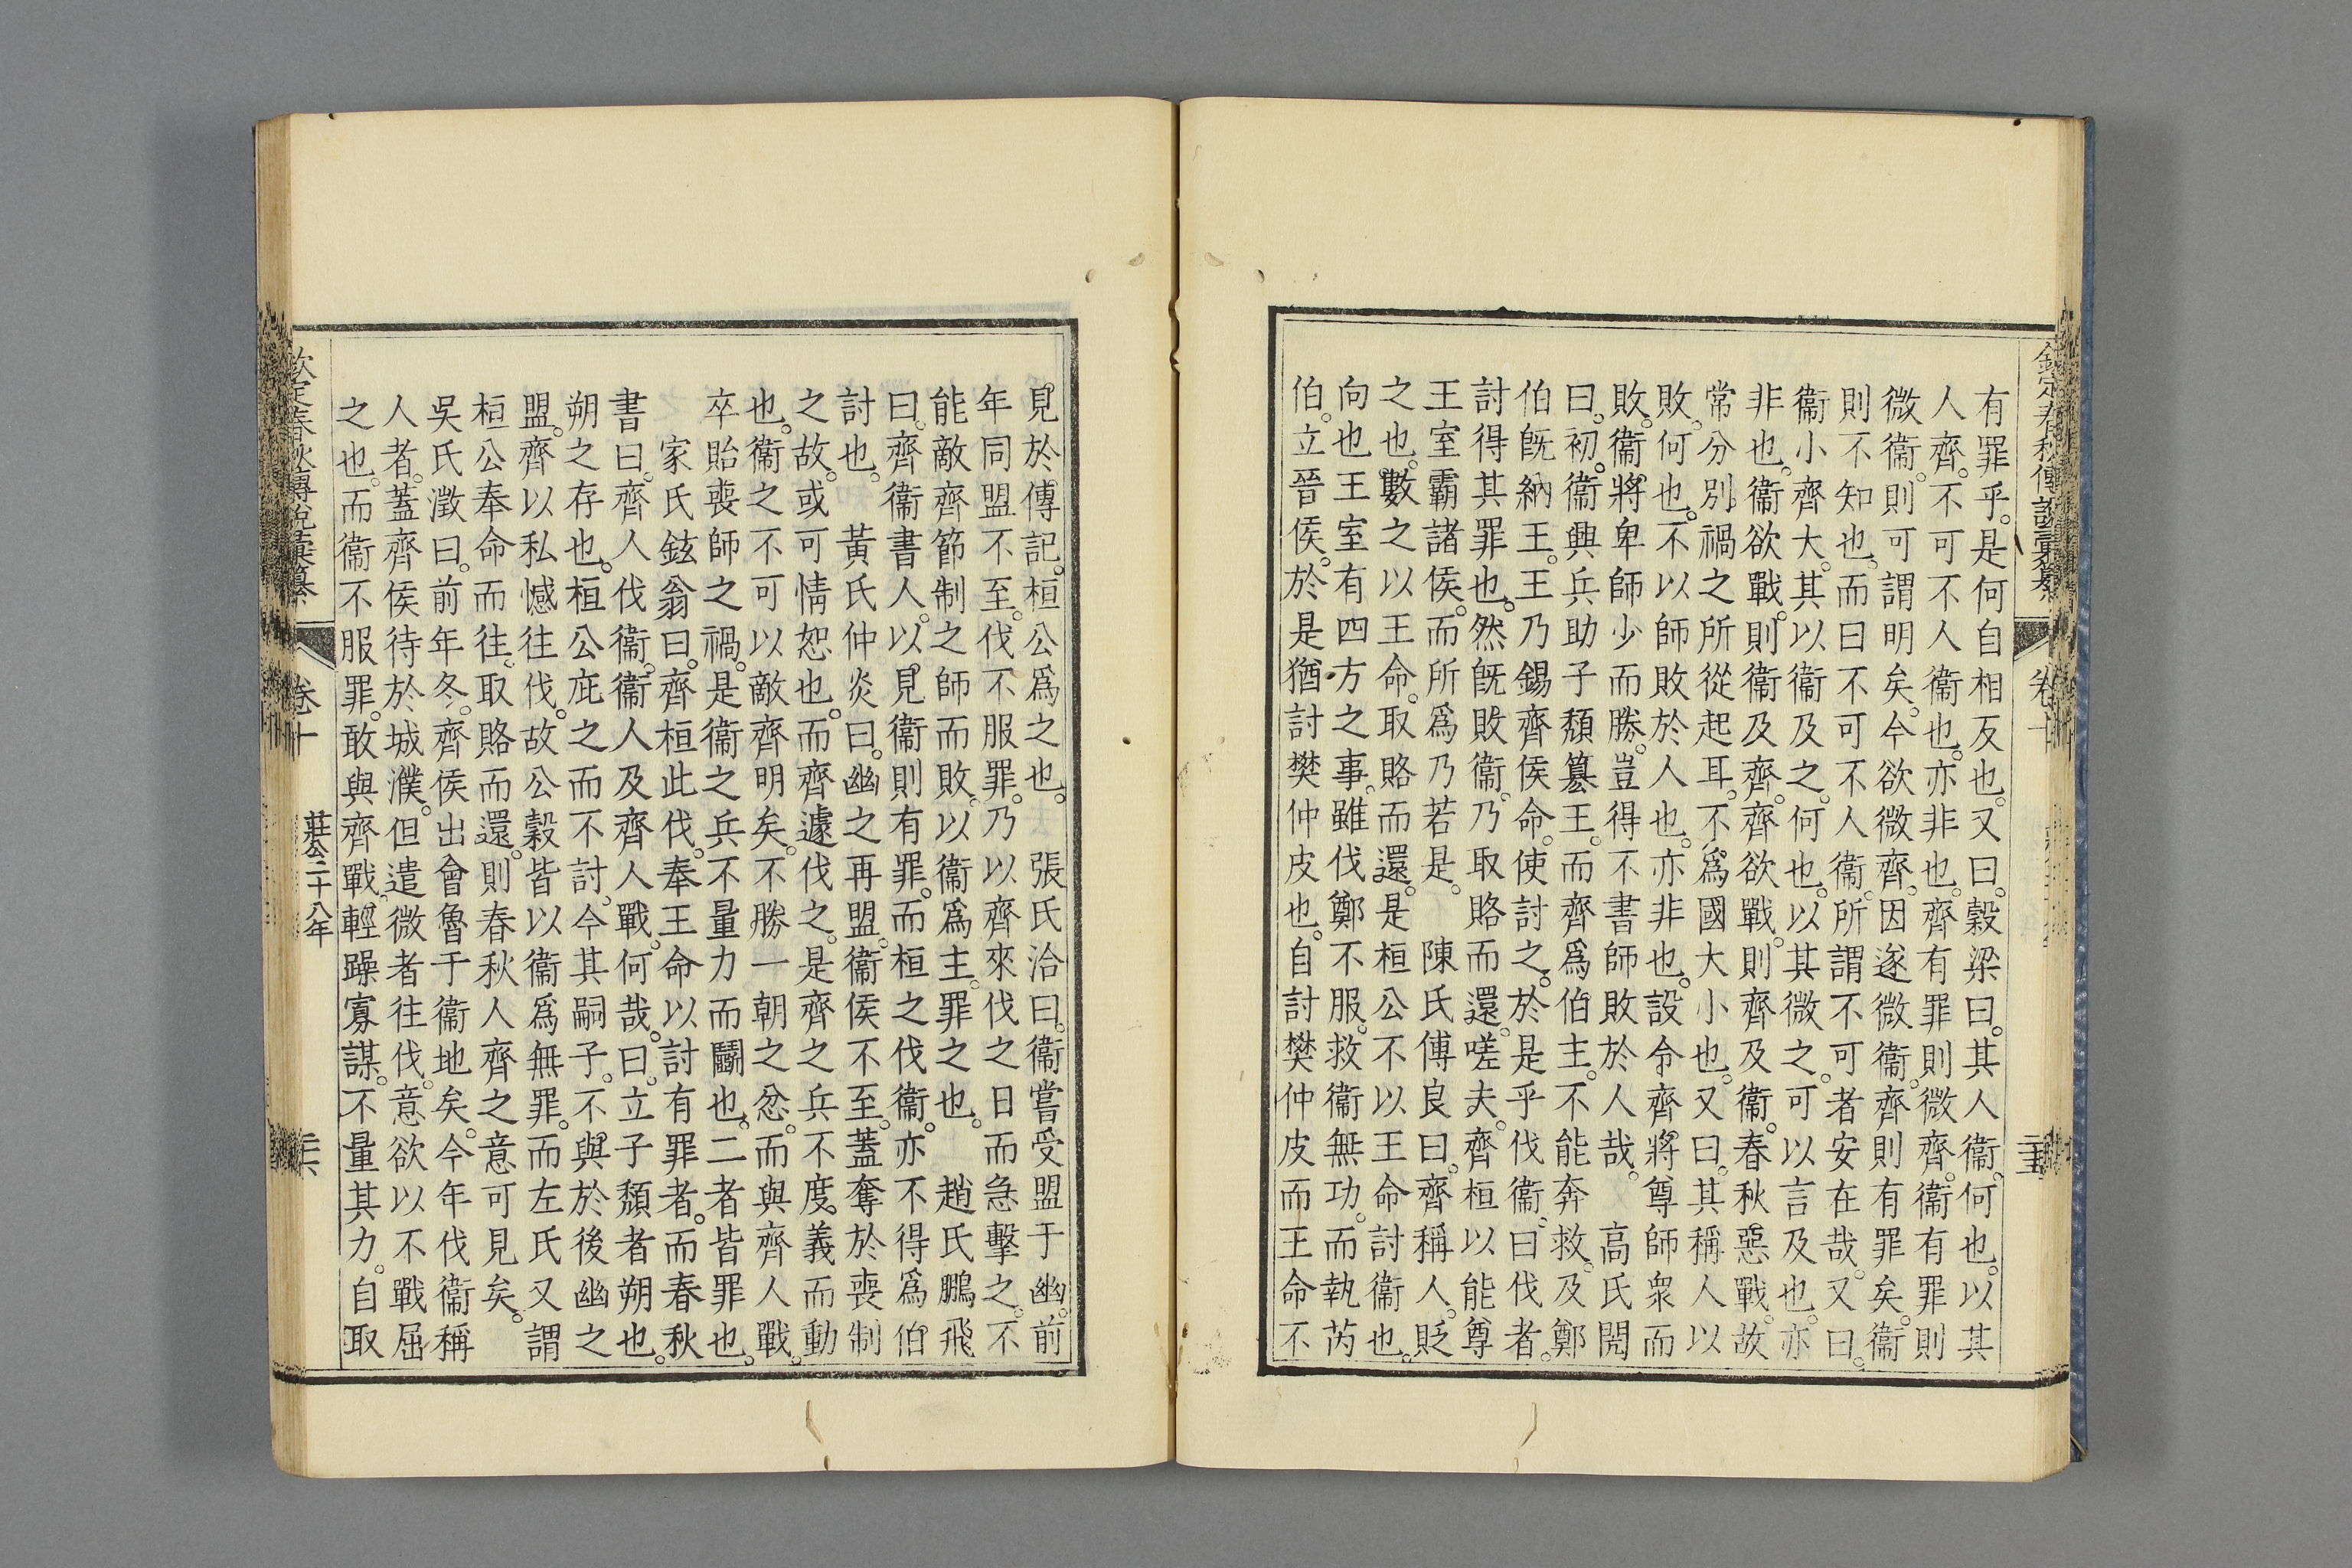 有罪乎。是何自相反也。又曰。穀梁曰。其人衞。何也。以其
人齊。不可不人衞也。亦非也。齊有罪則微齊。衞有罪則
微衞。則可謂明矣。今欲微齊。因遂微衞。齊則有罪矣。衞
則不知也。而曰不可不人衞。所謂不可者安在哉。又曰。
衞小齊大。其以衞及之。何也。以其微之。可以言及也。亦
非也。衞欲戰。則衞及齊。齊欲戰。則齊及衞。春秋惡戰。故
常分別禍之所從起耳。不爲國大小也。又曰。其稱人以
敗。何也。不以師敗於人也。亦非也。設令齊將尊師衆而
敗。衞將卑師少而勝。豈得不書師敗於人哉。 高氏閌
曰。初。衞興兵助子頹篡王。而齊爲伯主。不能奔救。及鄭
伯旣納王。王乃錫齊侯命。使討之。於是乎伐衞。曰伐者。
討得其罪也。然旣敗衞。乃取賂而還。嗟夫。齊桓以能尊
王室霸諸侯。而所爲乃若是。 陳氏傅良曰。齊稱人。貶
之也。數之以王命。取賂而還。是桓公不以王命討衞也。
向也王室有四方之事。雖伐鄭不服。救衞無功。而執芮
伯。立晉侯。於是猶討樊仲皮也。自討樊仲皮而王命不
卷十
見於傳記。桓公爲之也。 張氏洽曰。衞嘗受盟于幽。前
年同盟不至。伐不服罪。乃以齊來伐之日而急擊之。不
能敵齊節制之師而敗。以衞爲主。罪之也。 趙氏鵬飛
曰。齊衞書人。以見衞則有罪。而桓之伐衞。亦不得爲伯
討也。 黃氏仲炎曰。幽之再盟。衞侯不至。蓋奪於喪制
之故。或可情恕也。而齊遽伐之。是齊之兵不度義而動
也。衞之不可以敵齊明矣。不勝一朝之忿。而與齊人戰。
卒貽喪師之禍。是衞之兵不量力而鬭也。二者皆罪也。
家氏鉉翁曰。齊桓此伐。奉王命以討有罪者。而春秋
書曰。齊人伐衞。衞人及齊人戰。何哉。曰。立子頹者朔也。
朔之存也。桓公庇之而不討。今其嗣子。不與於後幽之
盟。齊以私憾往伐。故公穀皆以衞爲無罪。而左氏又謂
桓公奉命而往。取賂而還。則春秋人齊之意可見矣。
吳氏澂曰。前年冬。齊侯出會魯于衞地矣。今年伐衞稱
人者。蓋齊侯待於城濮。但遣微者往伐。意欲以不戰屈
之也。而衞不服罪。敢與齊戰。輕躁寡謀。不量其力。自取
欽定春秋傳說彙纂
卷十
莊公二十八年